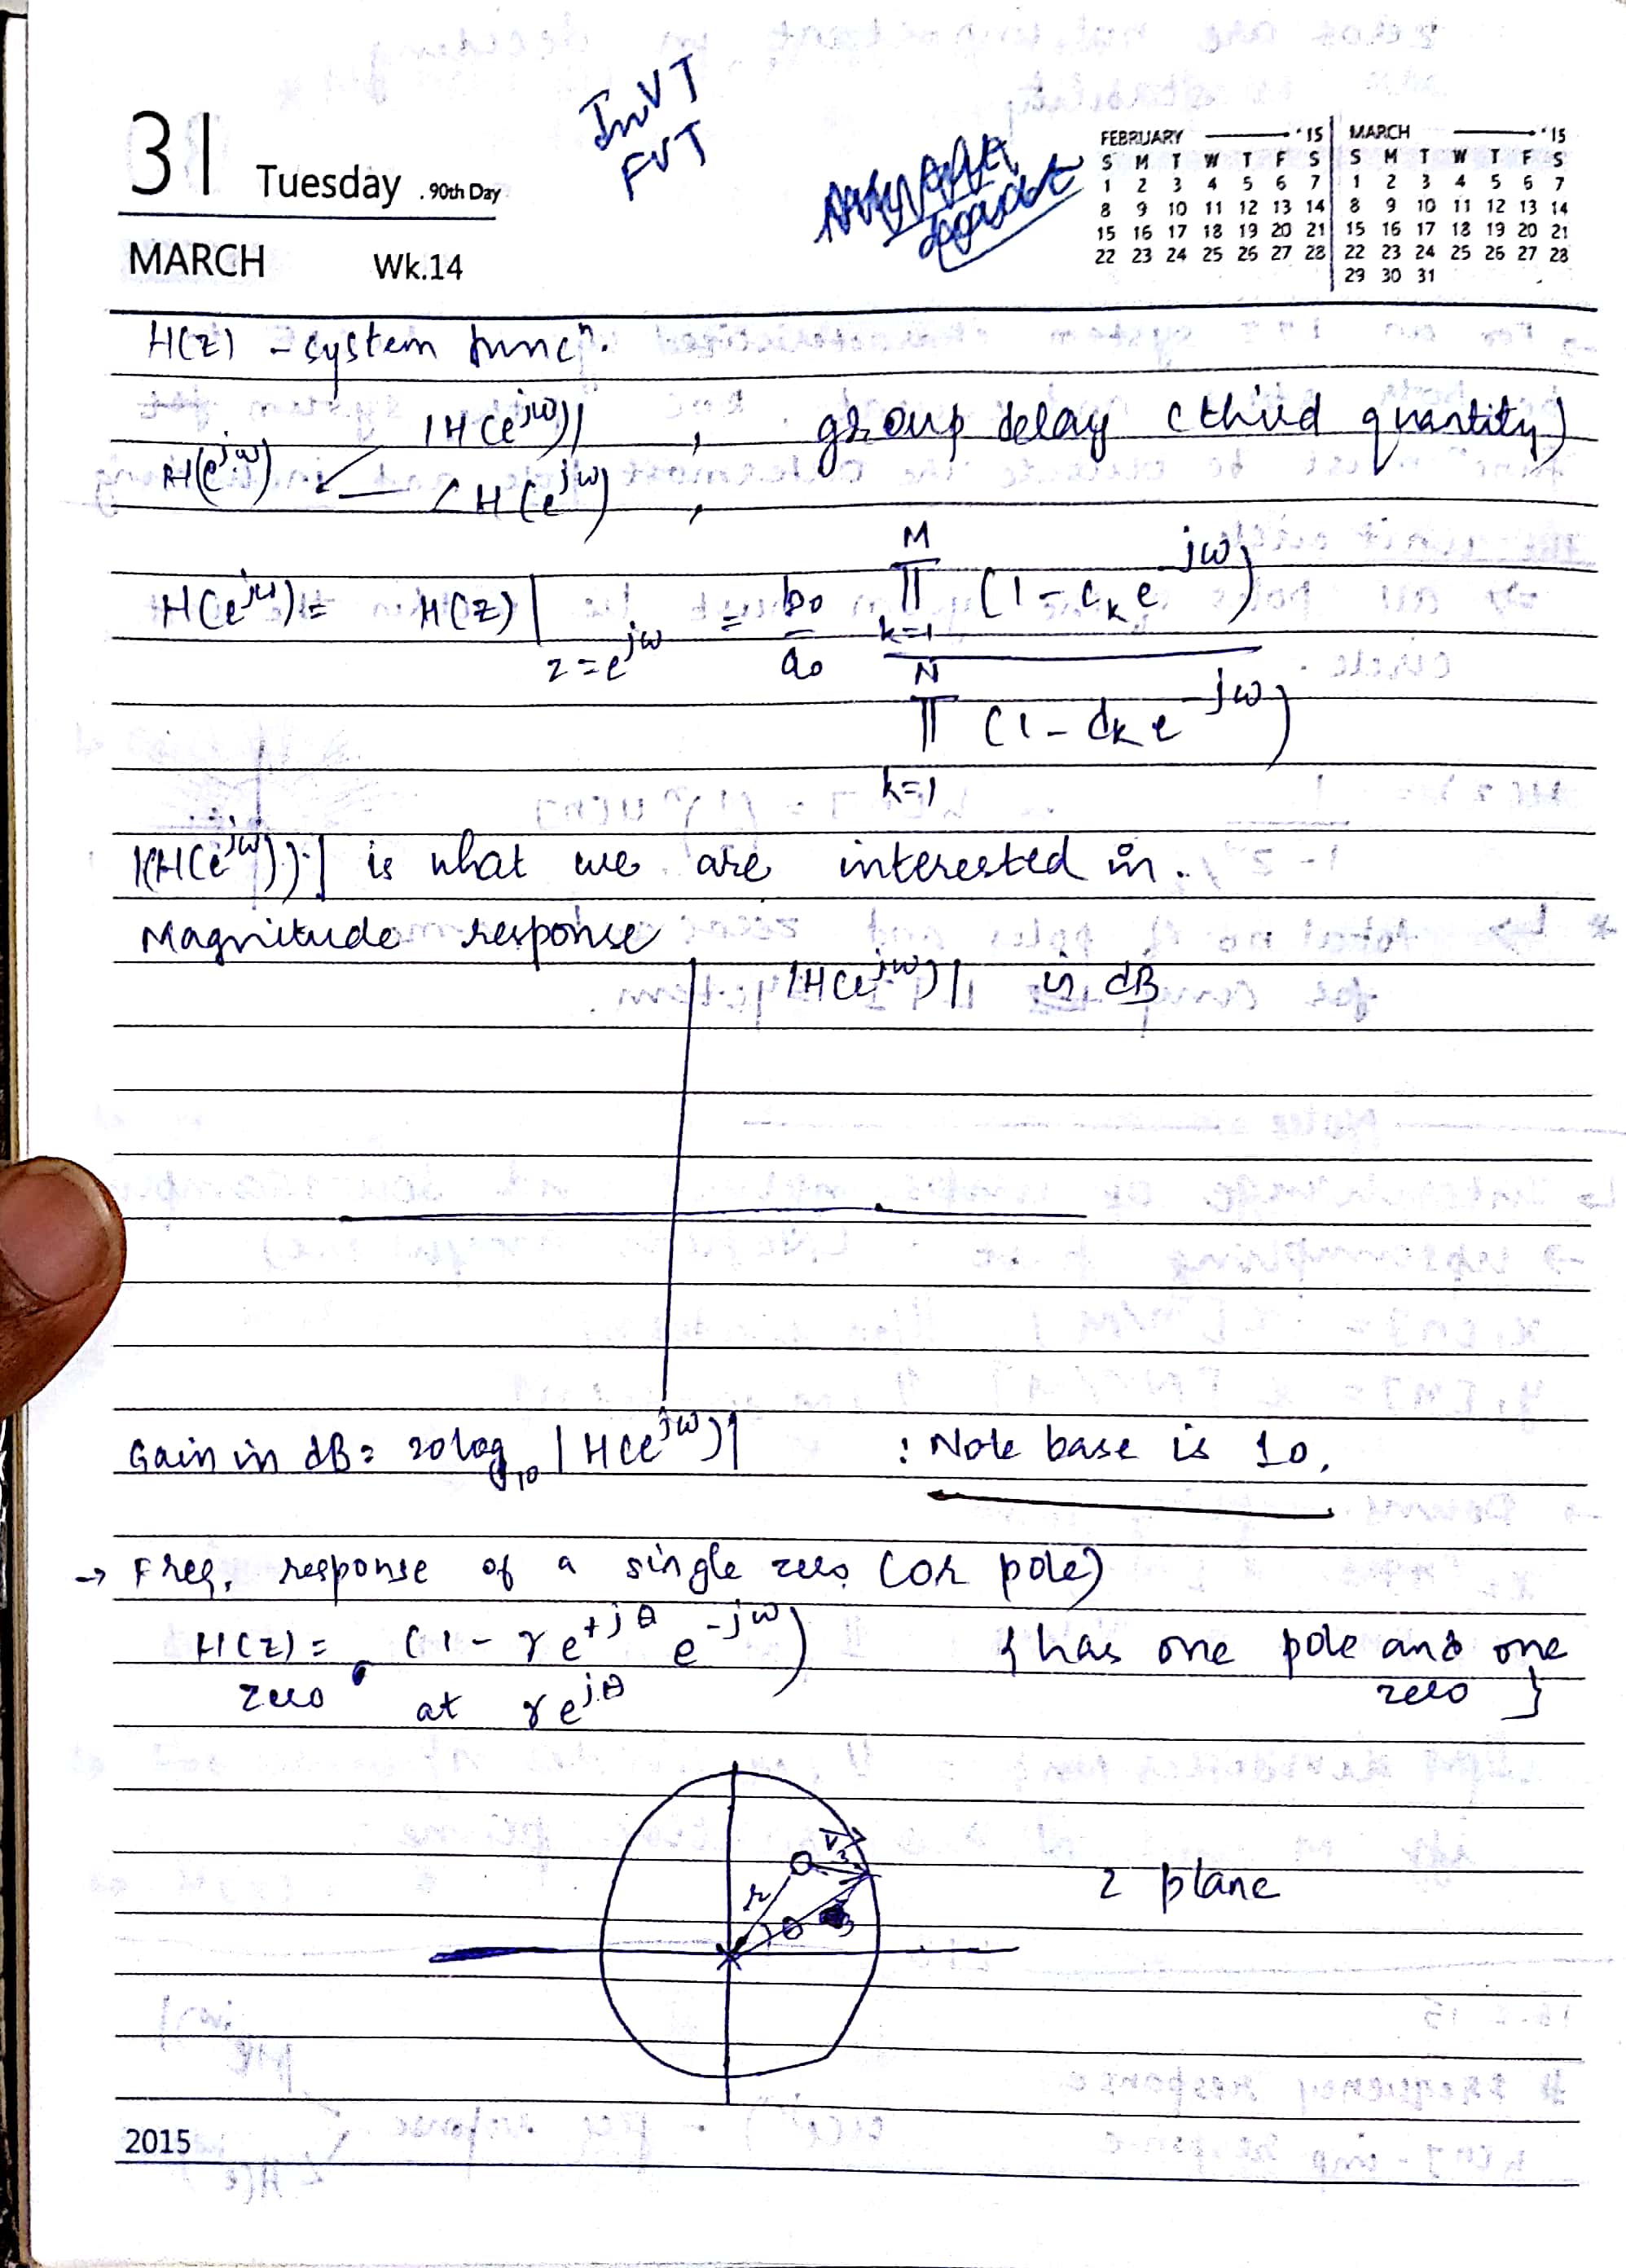 InVT
FVT
31 Tuesday . 90th Day
MARCH Wk.14
FEBRUARY '15
S M T W T F S
1 2 3 4 5 6 7
8 9 10 11 12 13 14
15 16 17 18 19 20 21
22 23 24 25 26 27 28
MARCH '15
S M T W T F S
1 2 3 4 5 6 7
8 9 10 11 12 13 14
15 16 17 18 19 20 21
22 23 24 25 26 27 28
29 30 31
H(z) - system funcⁿ.
H(e^{jω}) |H(e^{jω})| , group delay (third quantity)
∠H(e^{jω}) ,
H(e^{jω}) = H(z)|_{z=e^{jω}} = b₀/a₀ ∏_{k=1}^{M} (1 - c_k e^{-jω}) / ∏_{k=1}^{N} (1 - d_k e^{-jω})
|(H(e^{jω}))| is what we are interested in.
Magnitude response
|H(e^{jω})| in dB
Gain in dB = 20 log₁₀ |H(e^{jω})| : Note base is 10.
→ Freq. response of a single zero (or pole)
H(z) = (1 - r e^{+jθ} e^{-jω}) {has one pole and one zero}
zero at r e^{jθ}
V₃
r
θ
z plane
2015